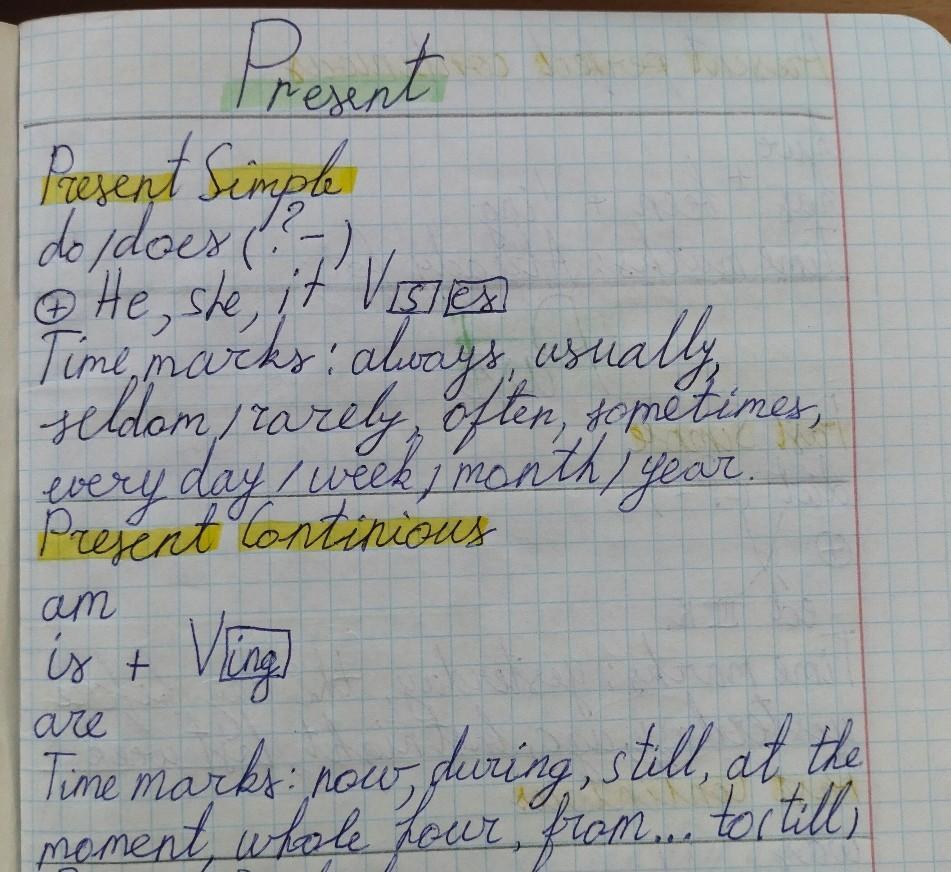 Present
Present Simple
do/does (?-)
⊕ He, she, it V s es
Time marks: always, usually,
seldom/rarely, often, sometimes,
every day/week/month/year.
Present Continious
am
is + V ing
are
Time marks: now, during, still, at the
moment, whole hour, from... to(till)